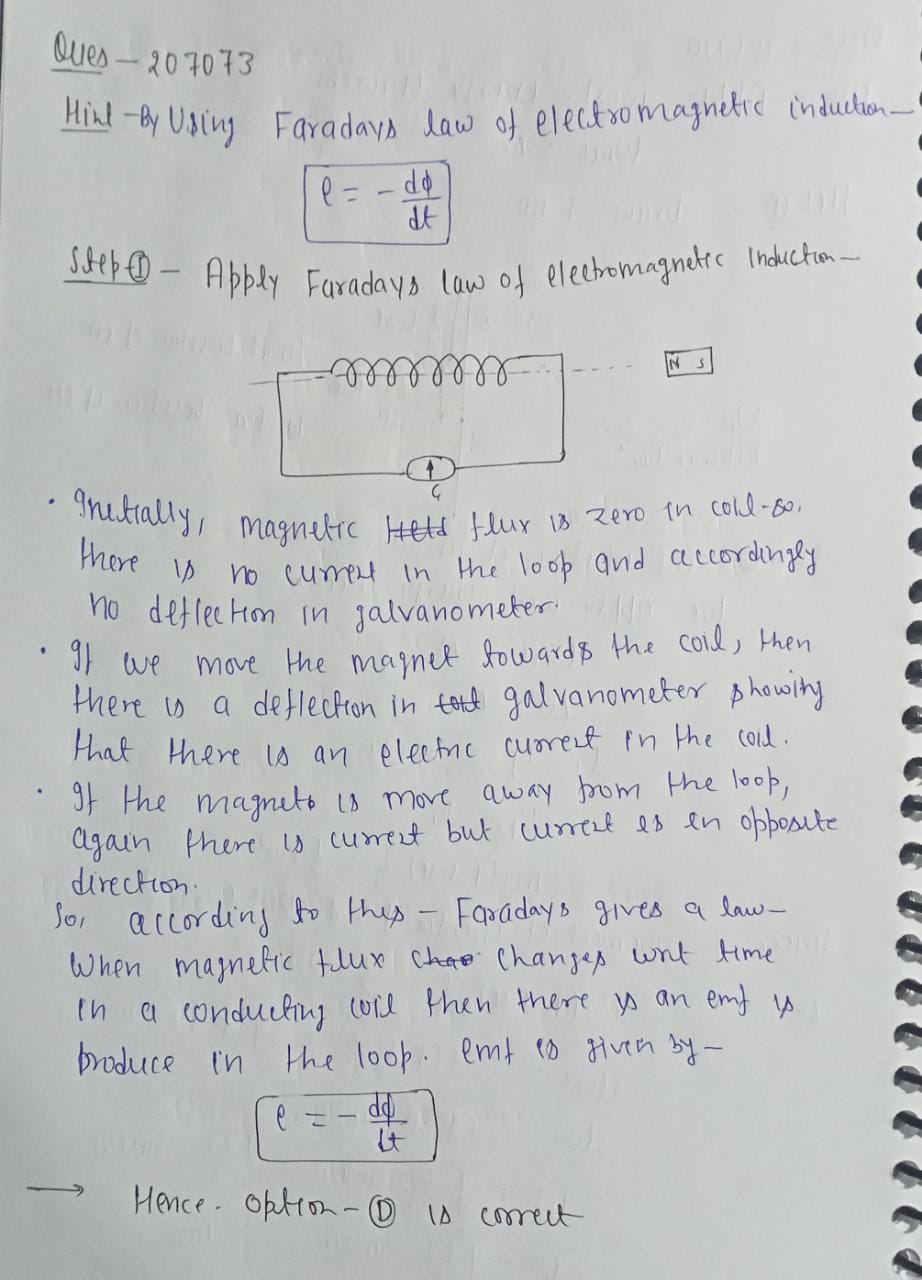 Ques - 207073
Hint - By Using Faradays law of electromagnetic induction -
e = - dϕ/dt
Step ① - Apply Faradays law of electromagnetic Induction -
N S
G
• Initially, magnetic flux is zero in coil - so,
there is no current in the loop and accordingly
no deflection in galvanometer.
• If we move the magnet towards the coil, then
there is a deflection in galvanometer showing
that there is an electric current in the coil.
• If the magnet is move away from the loop,
again there is current but current is in opposite
direction.
So, according to this - Faradays gives a law -
When magnetic flux changes wrt time
in a conducting coil then there is an emf is
produce in the loop. emf is given by -
e = - dϕ/dt
→ Hence. option - Ⓓ is correct